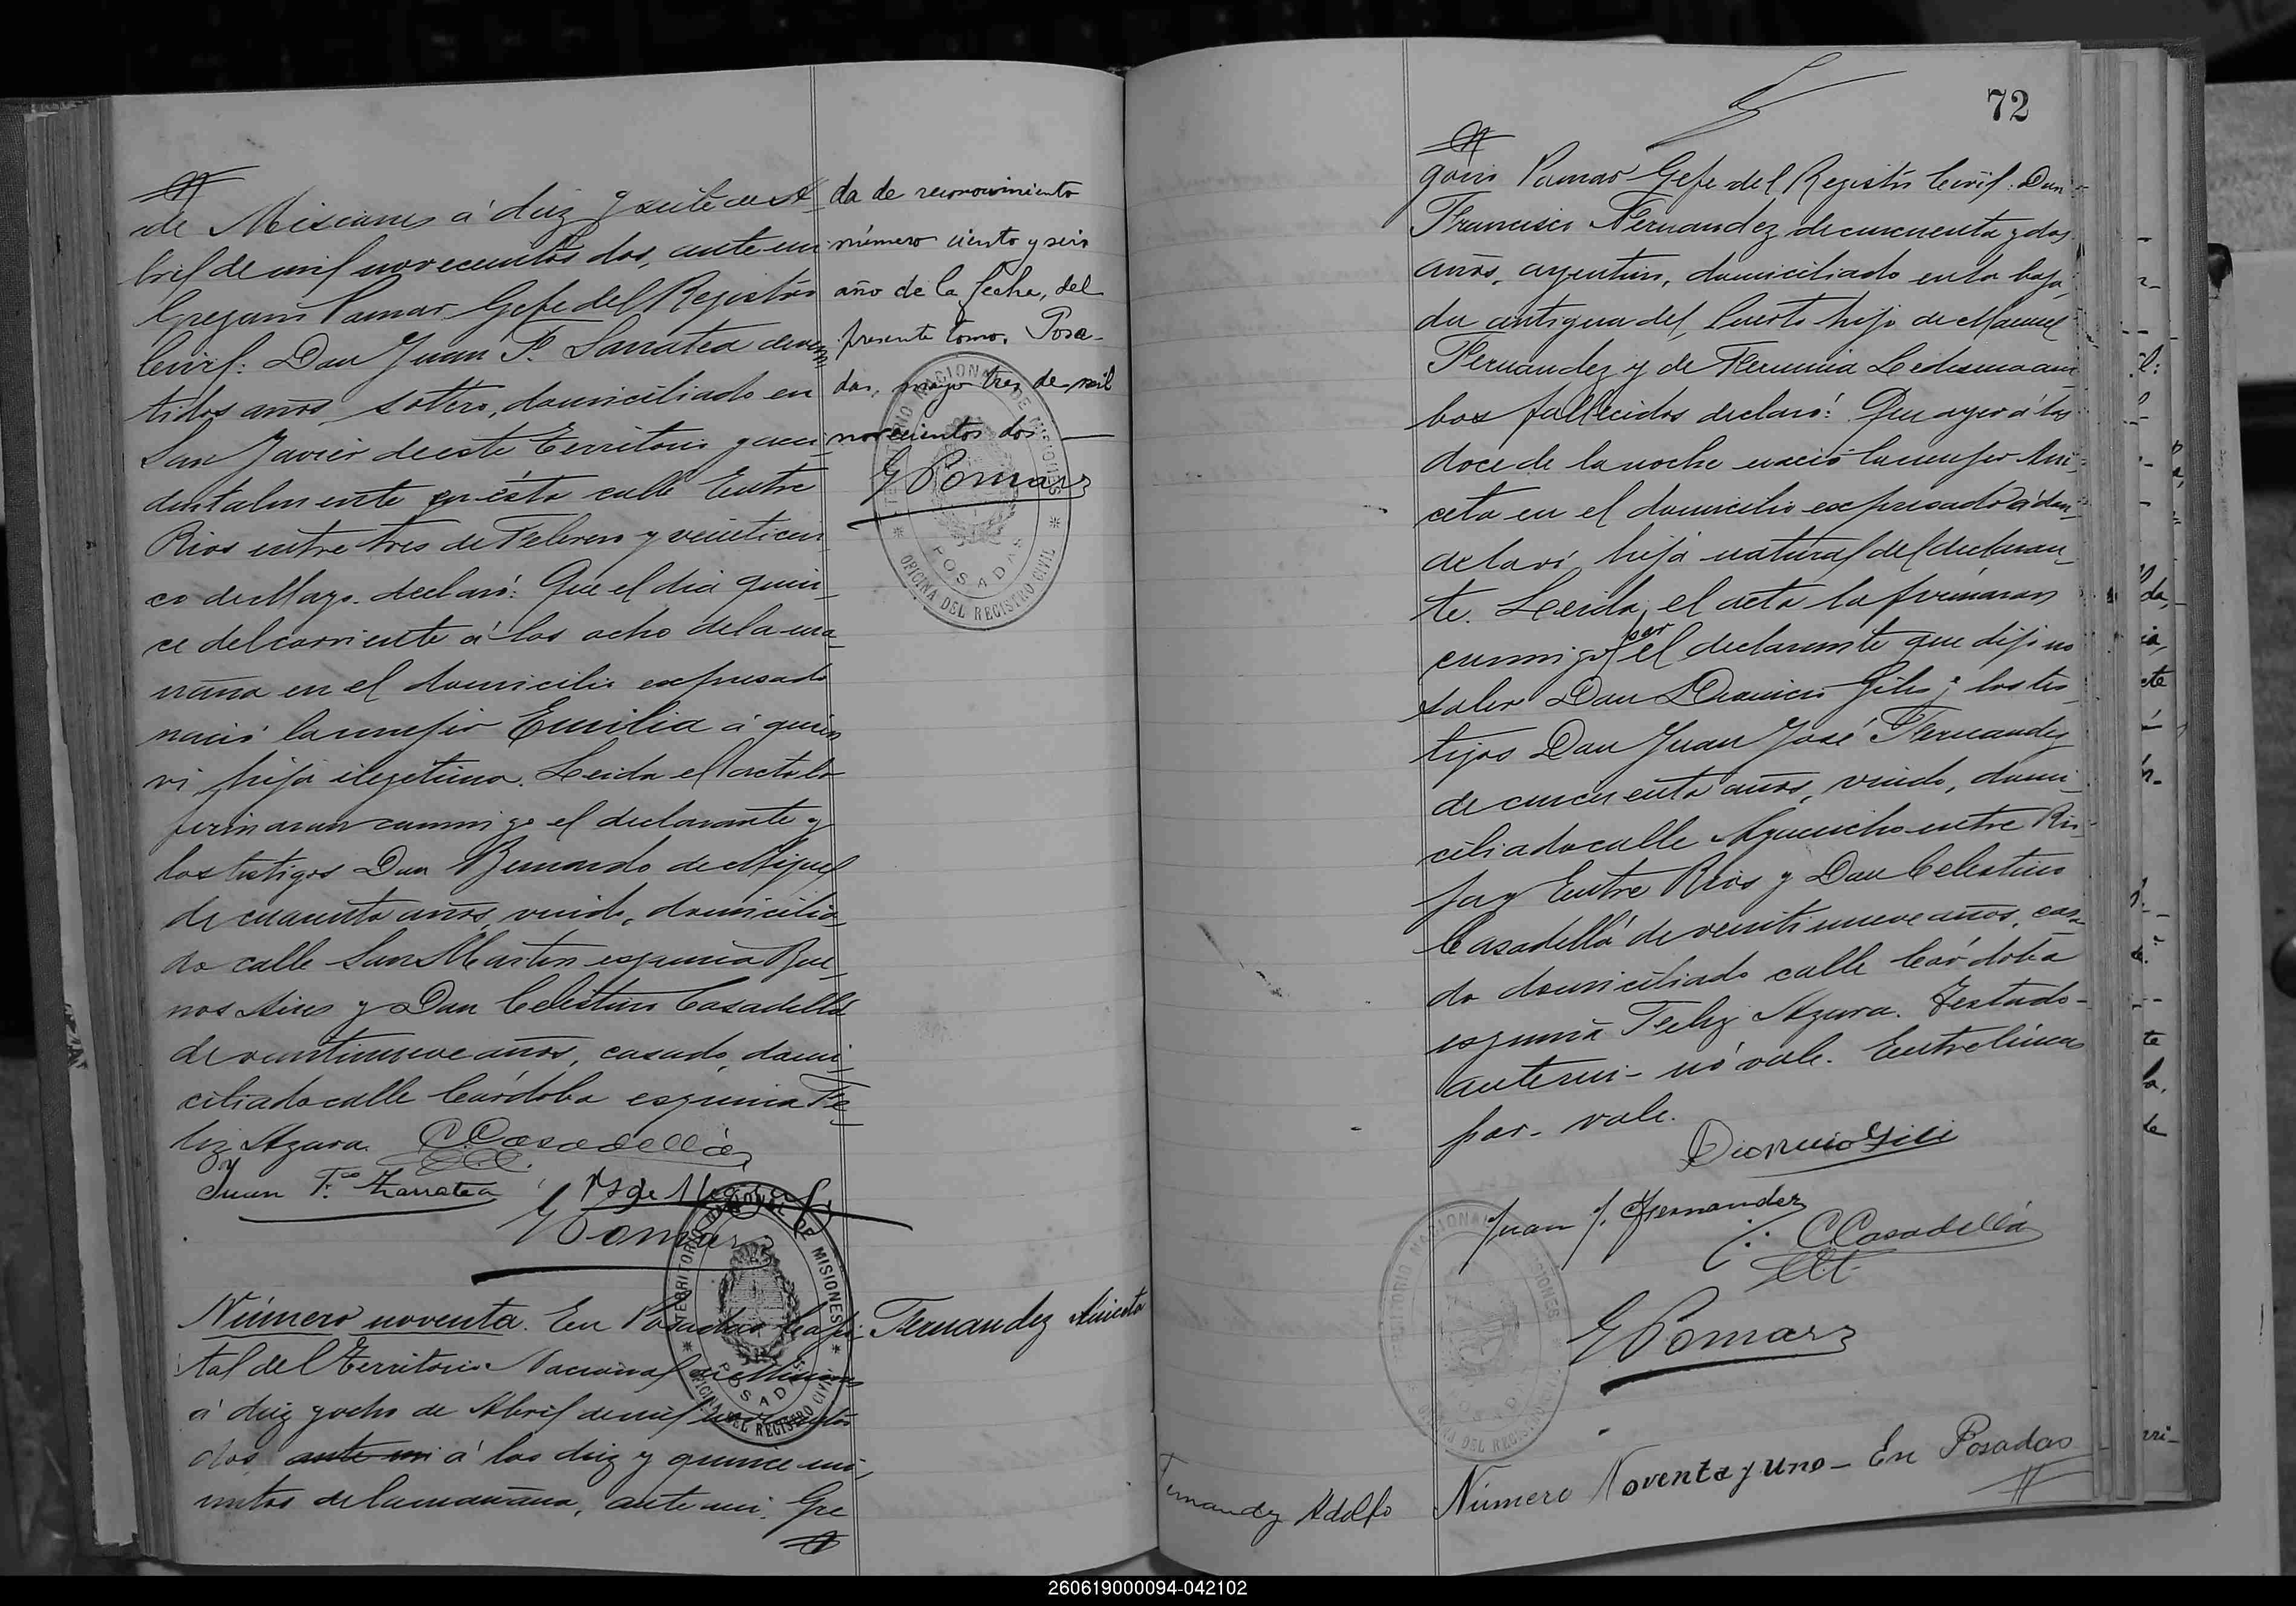 de Misiones á diez y siete de A-
bril de mil novecientos dos, ante mi
Gregorio Pomar Gefe del Registro
Civil: Don Juan F. Sarratea de vein
tidos años, soltero, domiciliado en
San Javier de este Territorio y acci-
dentalmente en ésta calle Entre
Rios entre tres de Febrero y veinticin-
co de Mayo, declaró: Que el dia quin-
ce del corriente á las ocho de la ma-
ñana en el domicilio expresado
nació la mujer Emilia á quien
ví, hija ilegítima. Leida el acta la
firmaron conmigo el declarante y
los testigos Don Bernardo de Miguel
de cuarenta años, viudo, domicilia-
do calle San Martin esquina Bue-
nos Aires y Don Celestino Casadellá
de veintinueve años, casado, domi-
ciliado calle Córdoba esquina Fe-
liz Azara. C. Casadellá
Juan F.co Zarratea
G Pomar
da de reconocimiento
número ciento y seis
año de la fecha, del
presente tomo. Posa-
das, mayo tres de mil
novecientos dos —
G Pomar
TERRITORIO NACIONAL DE MISIONES
POSADAS
OFICINA DEL REGISTRO CIVIL
TERRITORIO NACIONAL DE MISIONES
POSADAS
OFICINA DEL REGISTRO CIVIL
Fernandez Aniceta
Número noventa. En Posadas Capi-
tal del Territorio Nacional de Misiones
á diez y ocho de Abril de mil novecientos
dos ante mi á las diez y quince mi-
nutos de la mañana, ante mi, Gre
72
gorio Pomar Gefe del Registro Civil: Don
Francisco Fernandez de cincuenta y dos
años, argentino, domiciliado en la baja-
da antigua del Puerto hijo de Manuel
Fernandez y de Herminia Ledesma am-
bos fallecidos declaró: Que ayer á las
doce de la noche nació la mujer Ani-
ceta en el domicilio expresado á don-
de la ví, hija natural del declaran-
te. Leida, el acta la firmaron
conmigo por el declarante que dijo no
saber Don Dionicio Gili; los tes-
tigos Don Juan José Fernandez
de cincuenta años, viudo, domi-
ciliado calle Ayacucho entre Rio-
ja y Entre Rios y Don Celestino
Casadellá de veintinueve años, casa-
do domiciliado calle Córdoba
esquina Feliz Azara. Testado-
ante mi- nó vale. Entre lineas
por- vale.
Dionicio Gili
Juan J. Fernandez
C Casadellá
G Pomar
TERRITORIO NACIONAL MISIONES
Fernandez Adolfo
Número Noventa y uno - En Posadas
260619000094-042102